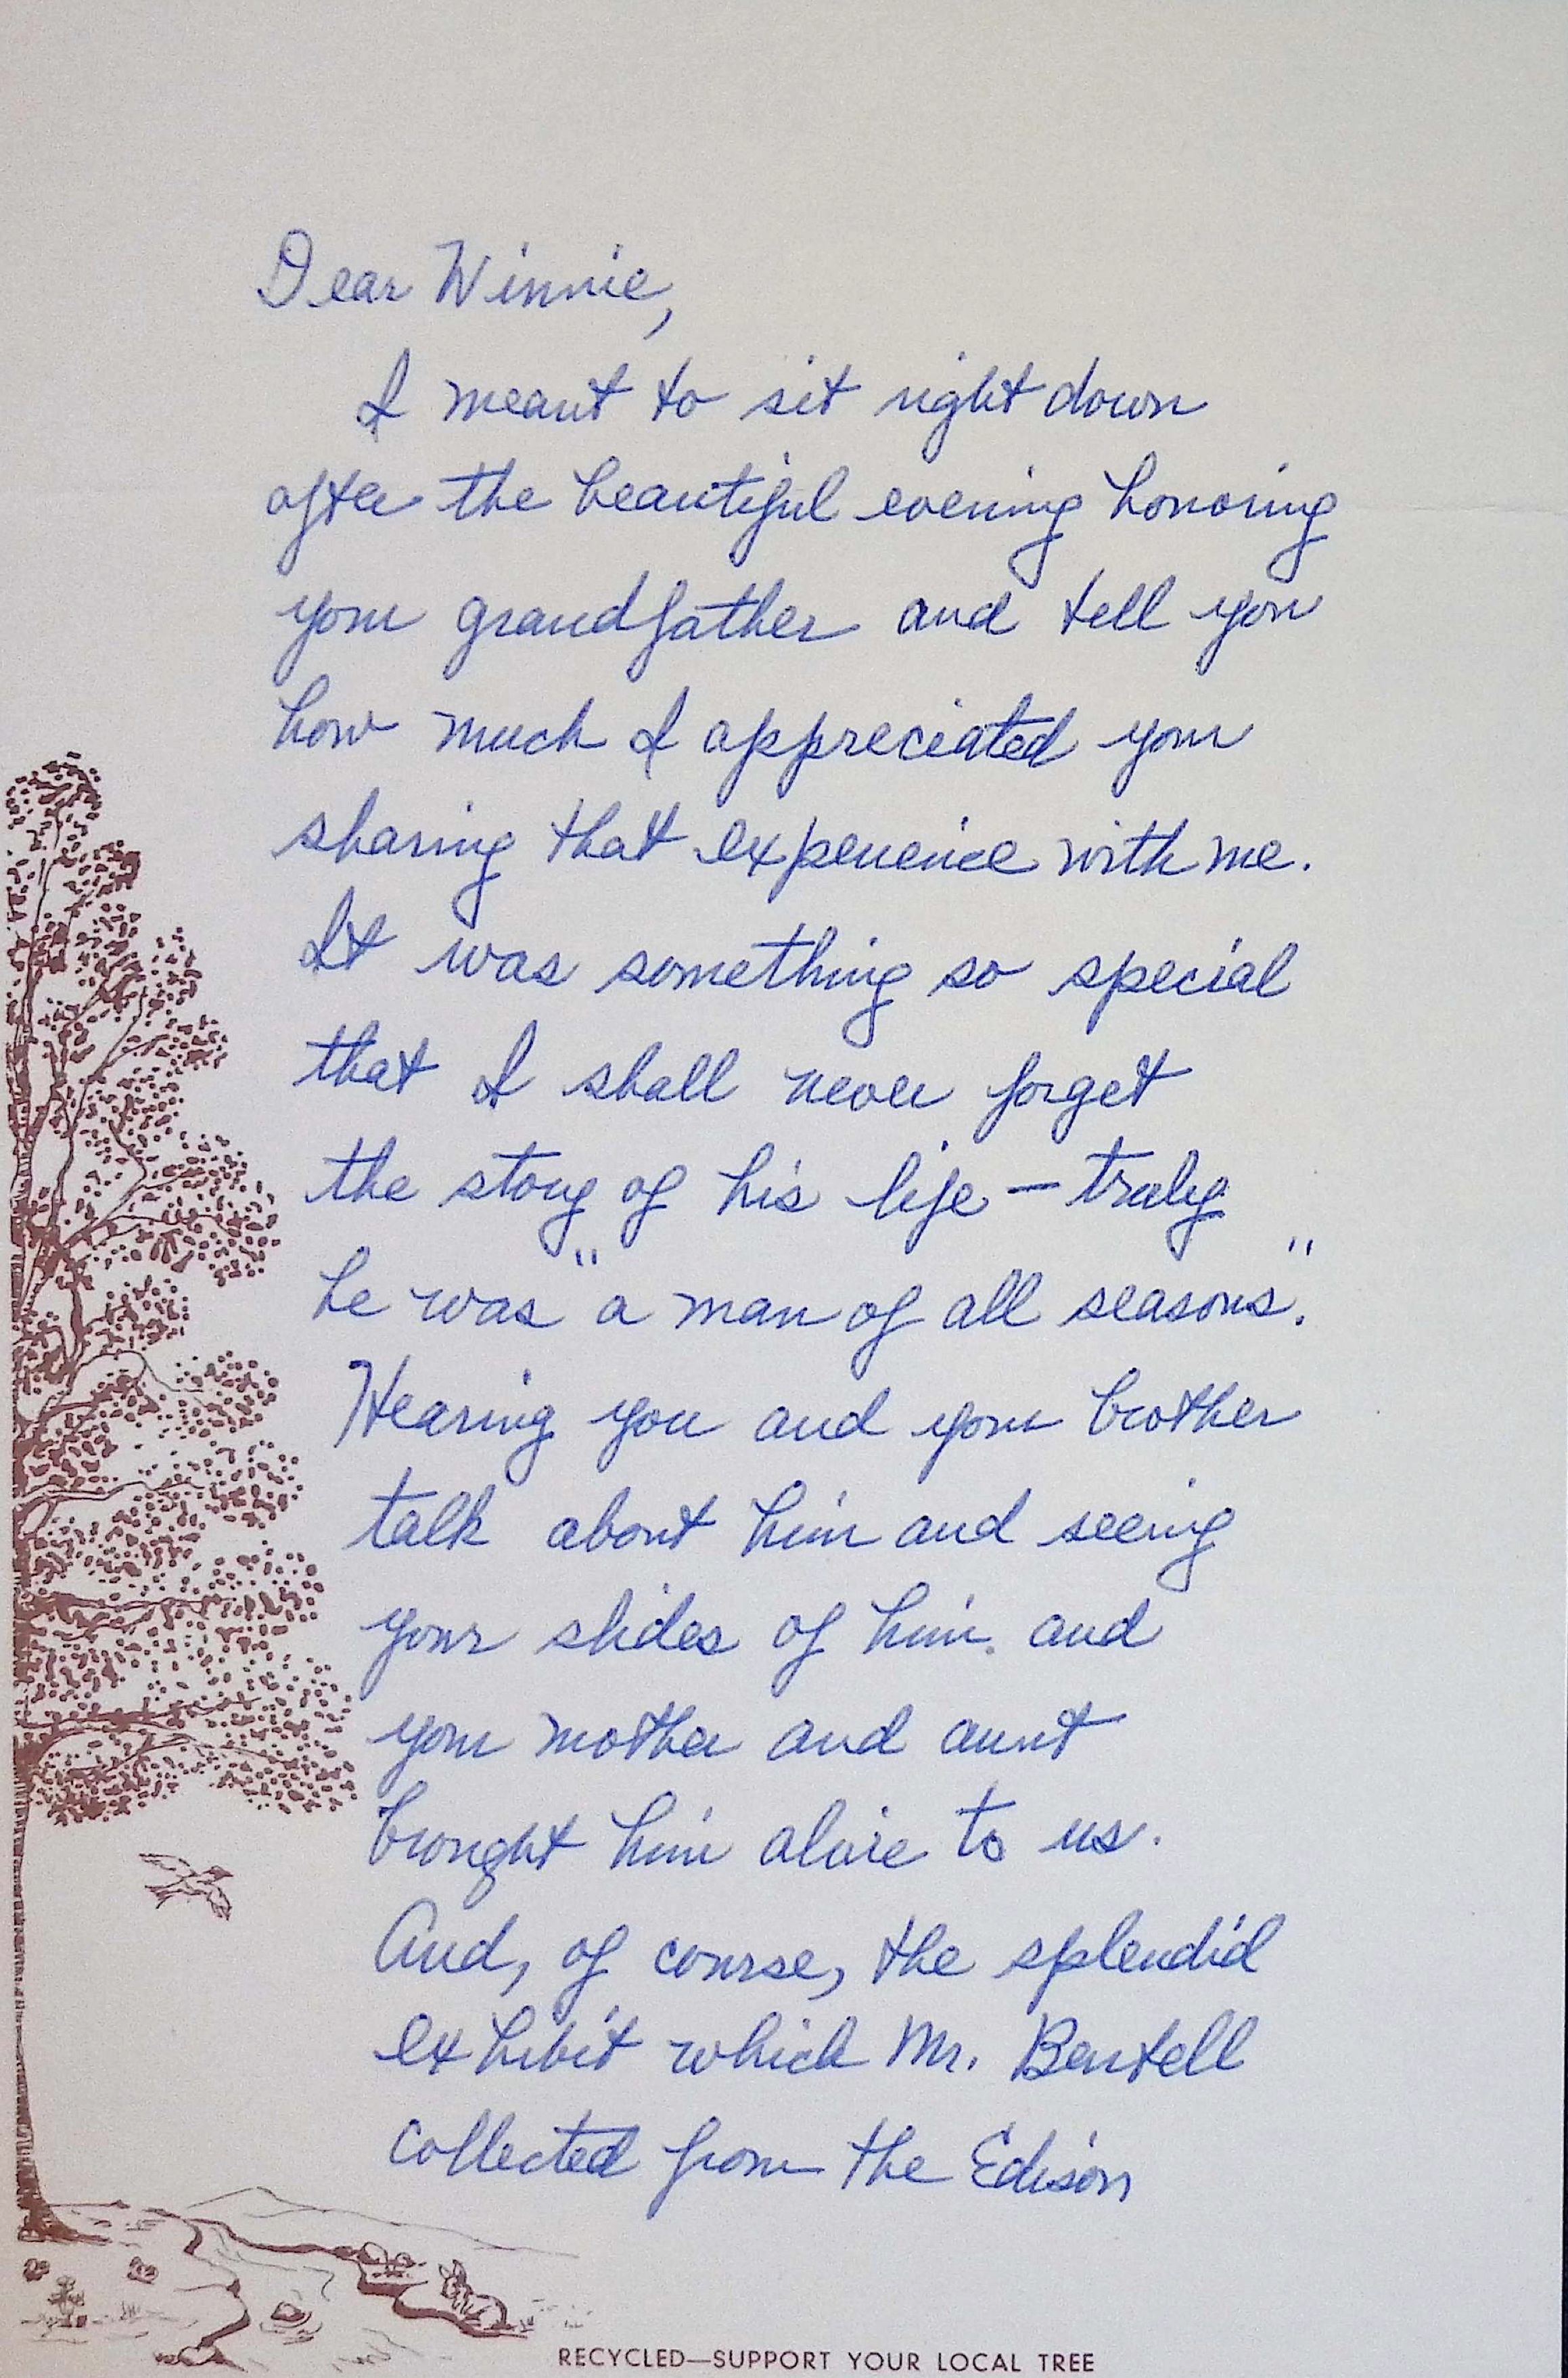 Dear Winnie,
I meant to sit right down
after the beautiful evening honoring
your grandfather and tell you
how much I appreciated your
sharing that experience with me.
It was something so special
that I shall never forget
the story of his life — truly
he was "a man of all seasons."
Hearing you and your brother
talk about him and seeing
your slides of him and
your mother and aunt
brought him alive to us.
And, of course, the splendid
exhibit which Mr. Bentell
collected from the Edison
RECYCLED—SUPPORT YOUR LOCAL TREE